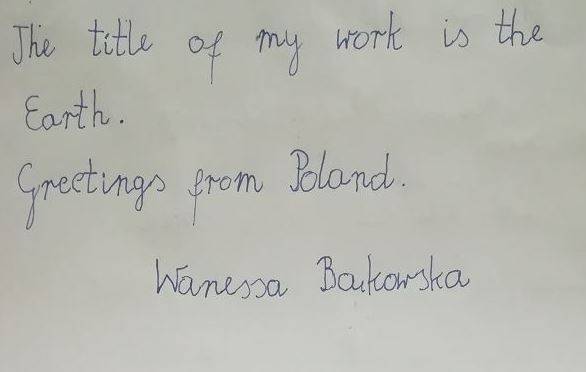 The title of my work is the
Earth.
Greetings from Poland.
Wanessa